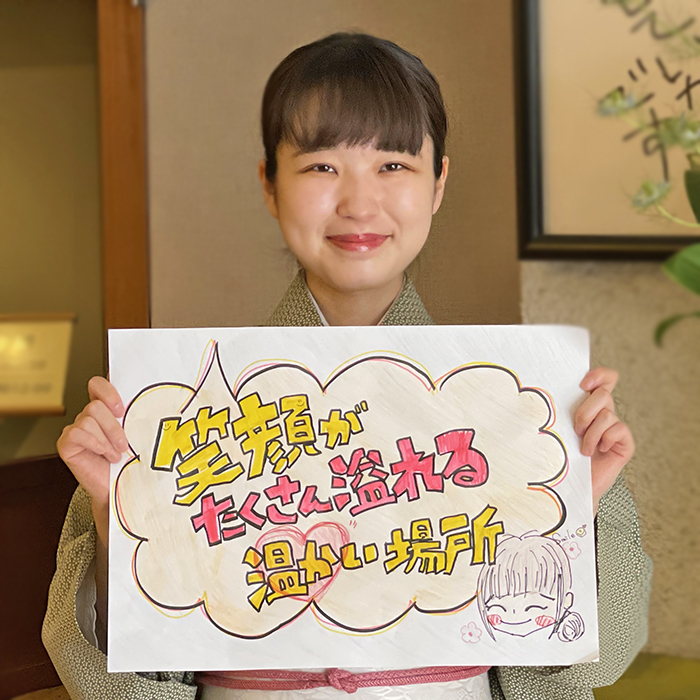 笑顔が
たくさん溢れる
温かい場所
Smile